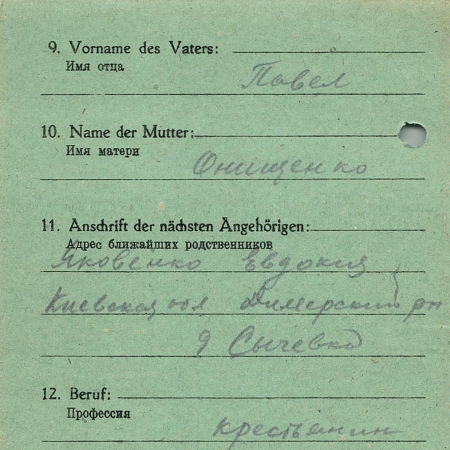 9. Vorname des Vaters:
Имя отца
Павел
10. Name der Mutter:
Имя матери
Онищенко
11. Anschrift der nächsten Angehörigen:
Адрес ближайших родственников
Яковенко Евдокия
Киевская обл Димерский рн
д Сычевка
12. Beruf:
Профессия
крестьянин